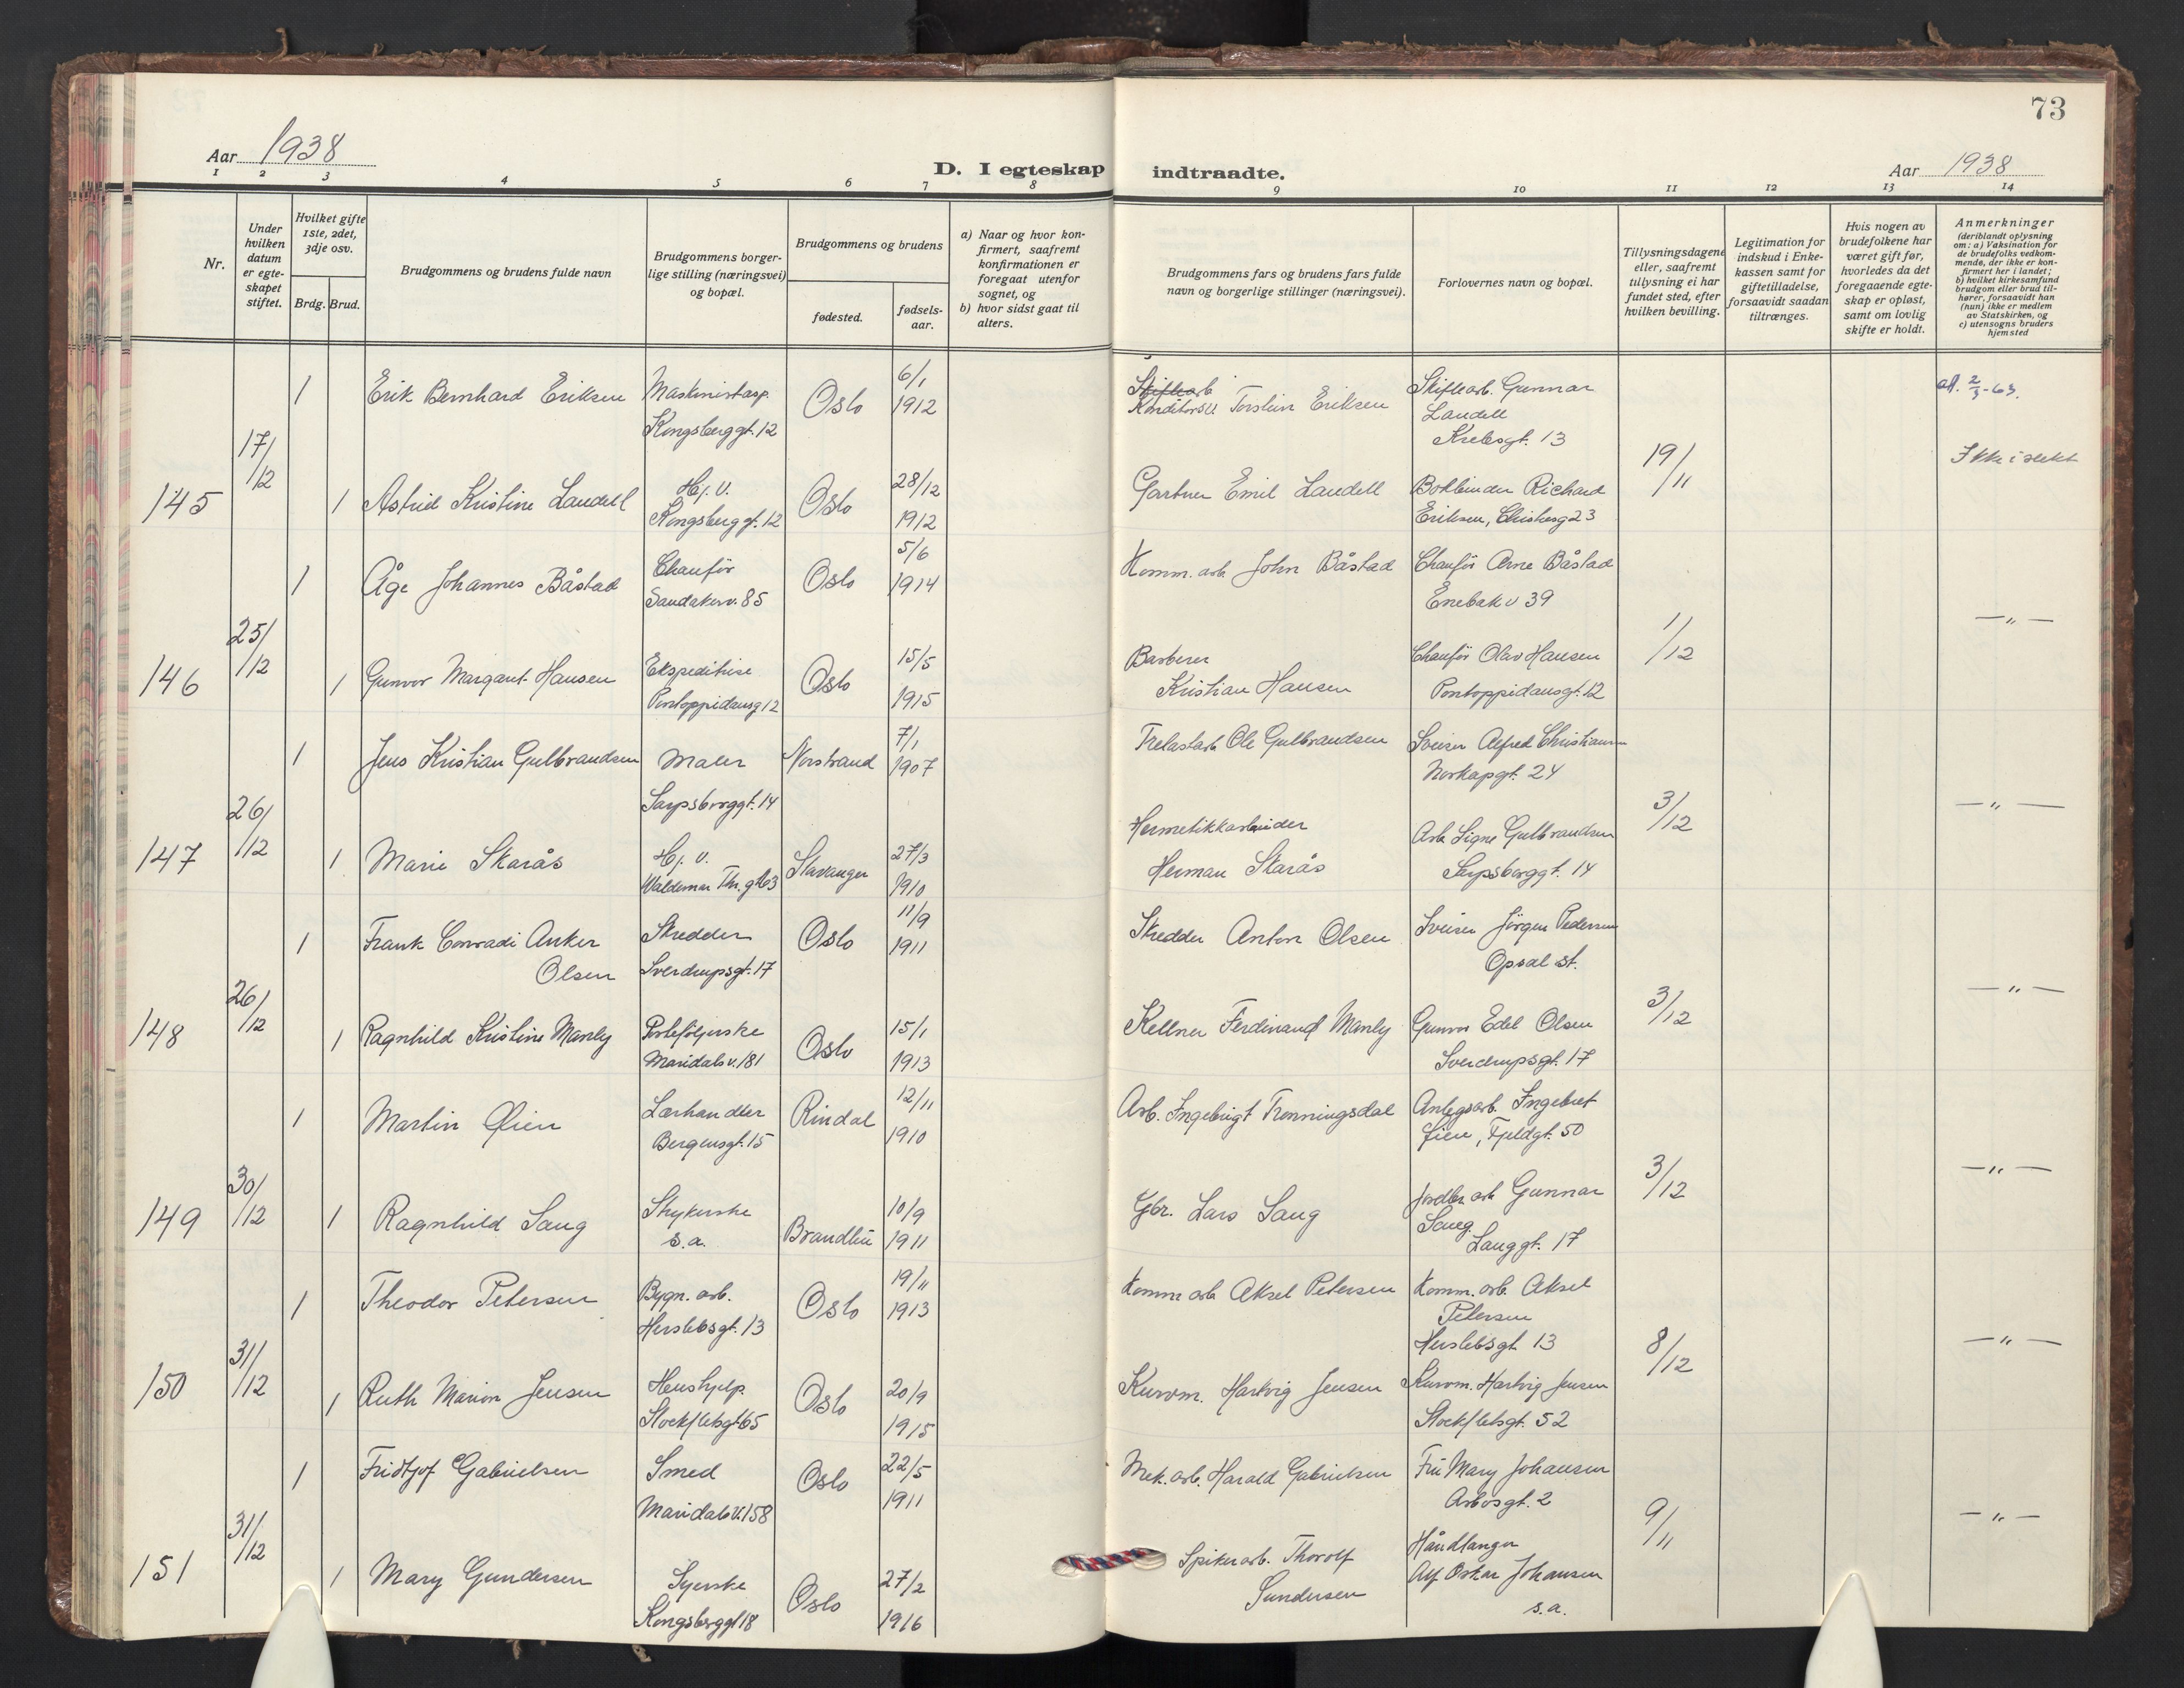 73
Aar 1938
D. I egteskap indtraadte.
Aar 1938
1 2 3 4 5 6 7 8 9 10 11 12 13 14
Nr.
Under hvilken datum er egte-skapet stiftet.
Hvilket gifte 1ste, 2det, 3dje osv.
Brdg. Brud.
Brudgommens og brudens fulde navn
Brudgommens borger-lige stilling (næringsvei) og bopæl.
Brudgommens og brudens
fødested.
fødsels-aar.
a) Naar og hvor kon-firmert, saafremt konfirmationen er foregaat utenfor sognet, og
b) hvor sidst gaat til alters.
Brudgommens fars og brudens fars fulde navn og borgerlige stillinger (næringsvei).
Forlovernes navn og bopæl.
Tillysningsdagene eller, saafremt tillysning ei har fundet sted, efter hvilken bevilling.
Legitimation for indskud i Enke-kassen samt for giftetilladelse, forsaavidt saadan tiltrænges.
Hvis nogen av brudefolkene har været gift før, hvorledes da det foregaaende egte-skap er opløst, samt om lovlig skifte er holdt.
Anmerkninger
(deriblandt oplysning om: a) Vaksination for de brudefolks vedkom-mende, der ikke er kon-firmert her i landet; b) hvilket kirkesamfund brudgom eller brud til-hører, forsaavidt han (hun) ikke er medlem av Statskirken, og c) utensogns bruders hjemsted
145 17/12
1 Erik Bernhard Eriksen Maskinistasp. Kongsberggt. 12 Oslo 6/1 1912 Konditorsv. Torstein Eriksen Skiftearb. Gunnar Laudell Krebsgt. 13 2/3-63.
1 Astrid Kristine Laudell Hj. v. Kongsberggt. 12 Oslo 28/12 1912 Gartner Emil Laudell Bokbinder Richard Eriksen, 23 19/11 Ikke i slekt
146 25/12
1 Åge Johannes Båstad Chaufför Sandakerv. 85 Oslo 5/6 1914 Komm. arb. John Båstad Chaufför Arne Båstad Enebakv 39
1 Gunvor Margaret Hansen Ekspeditrise Pontoppidansg 12 Oslo 15/5 1915 Barberer Kristian Hansen Chaufför Olav Hansen Pontoppidansgt. 12 1/12 — " —
147 26/12
1 Jens Kristian Gulbrandsen Maler Sarpsborggt. 14 Norstrand 7/1 1907 Trelastarb Ole Gulbrandsen Sveiser Alfred Christiansen Norkapgt. 24
1 Marie Skarås Hj. v. Waldemar Thr. gt 63 Stavanger 27/3 1910 Hermetikkarbeider Herman Skarås Arb. Signe Gulbrandsen Sarpsborggt. 14 3/12 — " —
148 26/12
1 Frank Conradi Anker Olsen Skredder Sverdrupsgt. 17 Oslo 11/9 1911 Skredder Anton Olsen Sveiser Jörgen Pedersen Opsal st.
1 Ragnhild Kristine Manly Maridalsv. 181 Oslo 15/1 1913 Kellner Ferdinand Manly Gunvor Edel Olsen Sverdrupsgt. 17 3/12 — " —
149 30/12
1 Martin Øien Lærhandler Bergensgt. 15 Rindal 12/11 1910 Arb. Ingebrigt Trønningsdal Anlegsarb. Ingebret Øien, Fjeldgt. 50
1 Ragnhild Saug Strykerske s.a. Brandbu 10/9 1911 Gbr. Lars Saug Jordbr. arb Gunnar Saug Langgt. 17 3/12 — " —
150 31/12
1 Theodor Petersen Bygn. arb. Herslebsgt. 13 Oslo 19/11 1913 Komm arb Aksel Petersen Komm. arb. Aksel Petersen Herslebsgt 13
1 Ruth Marion Jensen Hushjelp. Stockfletsgt 65 Oslo 20/9 1915 Kurvm. Hartvig Jensen Kurvm. Hartvig Jensen Stockfletsgt. 52 8/12 — " —
151 31/12
1 Fridtjof Gabrielsen Smed Maridalsv. 158 Oslo 22/5 1911 Mek. arb. Harald Gabrielsen Fru Mary Johansen Arbosgt. 2
1 Mary Gundersen Syerske Kongsberggt 18 Oslo 27/2 1916 Spikerarb. Thorolf Gundersen Håndlanger Alf Oskar Johansen s.a. 9/11 — " —